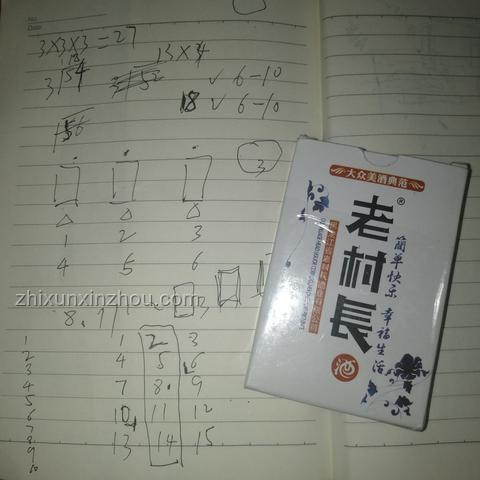 No.
Date
3×3×3=27
13×4
18
3 54
3 52
✓ 6-10
18 ✓ 6-10
156
3
1 2 3
4 5 6
zhixunxinzhou.com
8.
1 1 2 3
2 4 5 6
3 7 8 9
4 10 11 12
5 13 14 15
6
7
8
9
10
大众美酒典范
老村長
®
酒
簡單快乐
幸福生活